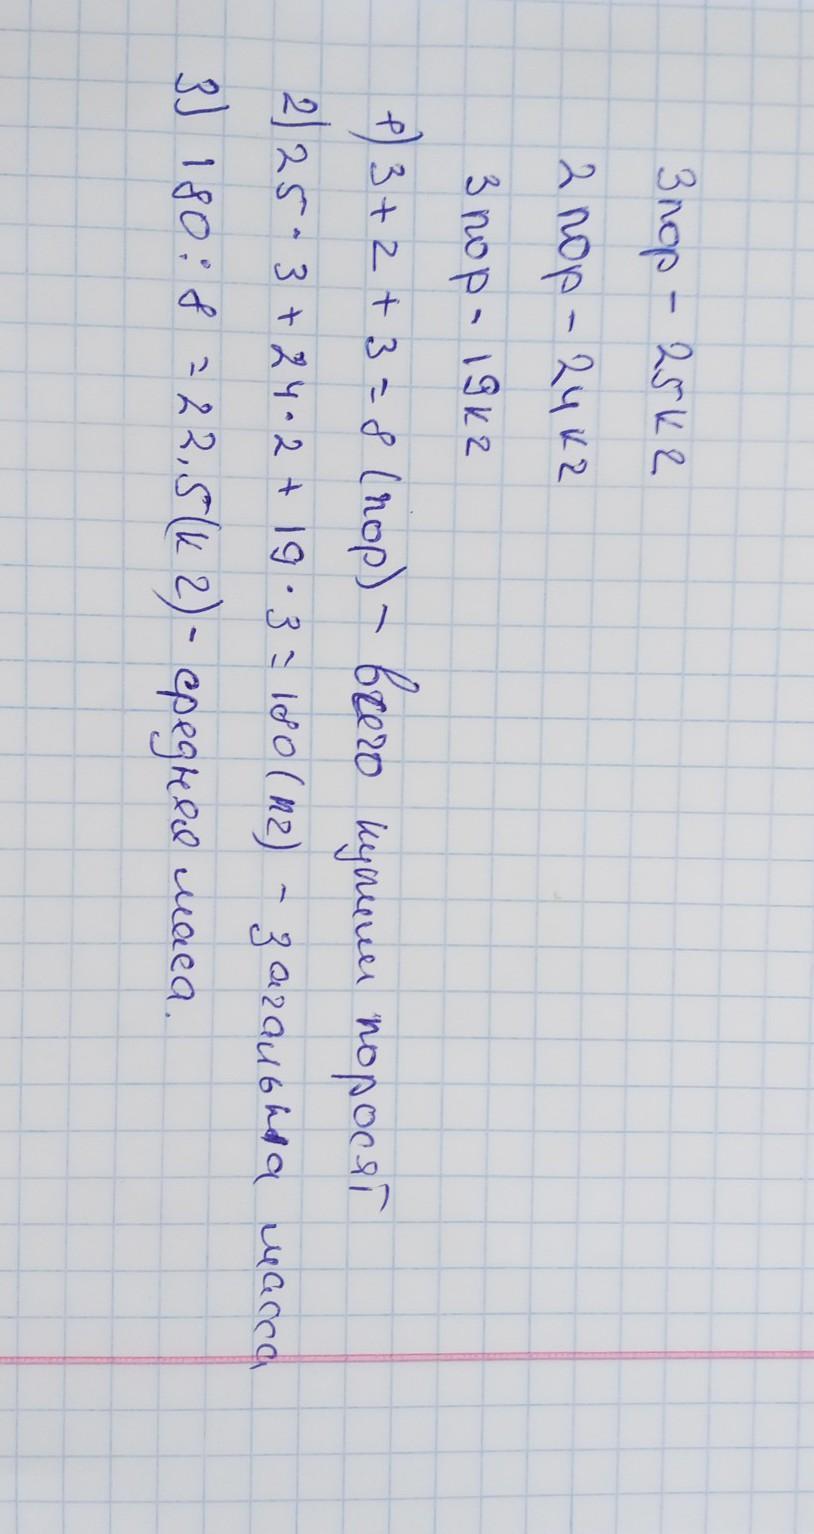 3 пор - 25 кг
2 пор - 24 кг
3 пор - 19 кг
1) 3 + 2 + 3 = 8 (пор) - всего купили поросят
2) 25 · 3 + 24 · 2 + 19 · 3 = 180 (кг) - загальна масса
3) 180 : 8 = 22,5 (кг) - средняя маса.